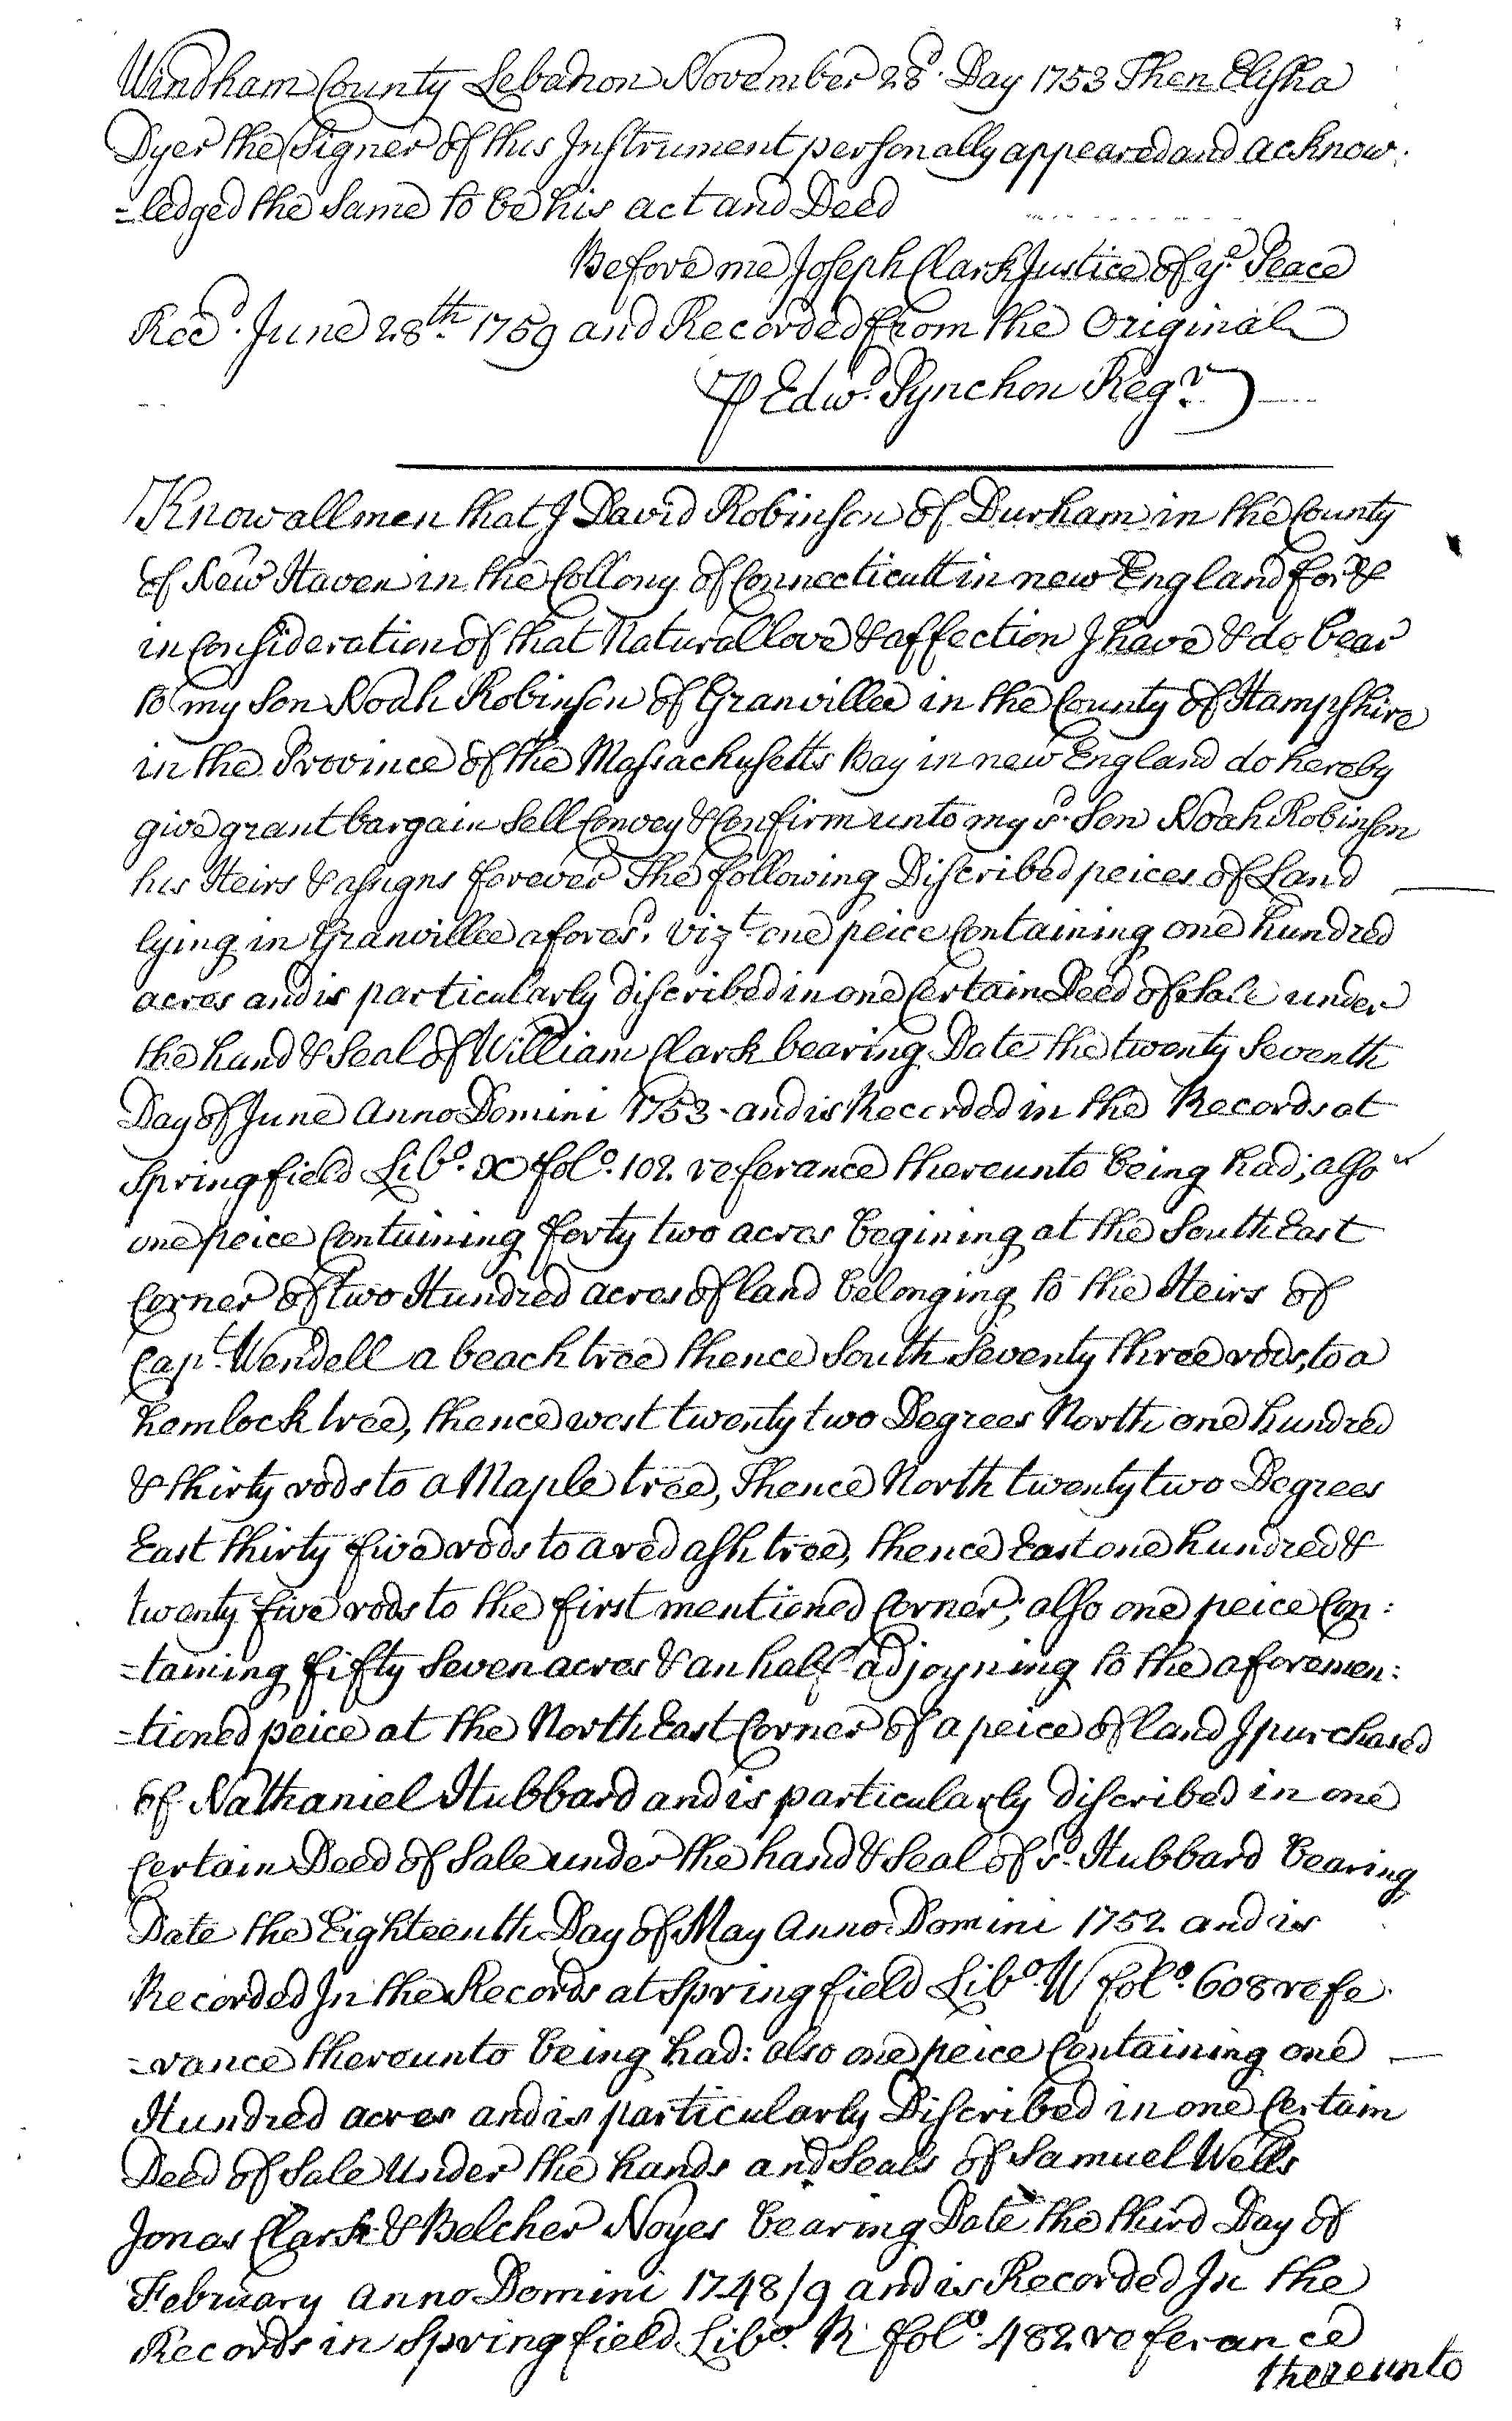 Windham County Lebanon November 28d. Day 1753 Then Elisha
Dyer the Signer of this Instrument personally appeared and acknow.
=ledged the Same to be his act and Deed
Before me Joseph Clark Justice of ye. Peace
Recd. June 28th. 1759 and Recorded from the Original
P Edwd. Pynchon Regr.
Know all men that I David Robinson of Durham in the County
of New Haven in the Collony of Connecticutt in new England for &
in Consideration of that Natural love & affection I have & do bear
to my Son Noah Robinson of Granvillee in the County of Hampshire
in the Province of the Massachusetts Bay in new England do hereby
give grant bargain Sell Convey & Confirm unto my sd. Son Noah Robinson
his Heirs & assigns forever The following Discribed peices of Land
lying in Granvillee aforesd. Vizt. one peice Containing one hundred
acres and is particularly discribed in one Certain Deed of Sale under
the hand & Seal of William Clark bearing Date the twenty Seventh
Day of June Anno Domini 1753 - and is Recorded in the Records at
Springfield Libo. X folo. 102. referance thereunto being had; also
one peice Containing forty two acres begining at the South East
Corner of two Hundred acres of land belonging to the Heirs of
Capt. Wendell a beach tree thence South Seventy three rods, to a
hemlock tree, thence west twenty two Degrees North one hundred
& thirty rods to a Maple tree, Thence North twenty two Degrees
East thirty five rods to a red ash tree, thence East one hundred &
twenty five rods to the first mentioned Corner; also one peice Con:
=taining fifty Seven acres & an half adjoyning to the aforemen:
=tioned peice at the North East Corner of a peice of land I purchased
of Nathaniel Hubbard and is particularly discribed in one
Certain Deed of Sale under the hand & Seal of sd. Hubbard bearing
Date the Eighteenth Day of May Anno Domini 1752 and is
Recorded In the Records at Springfield Libo. W folo. 608 refe.
=rance thereunto being had: also one peice Containing one
Hundred acres and is particularly Discribed in one Certain
Deed of Sale Under the hands and Seals of Samuel Wells
Jonas Clark & Belcher Noyes bearing Date the third Day of
February Anno Domini 1748/9 and is Recorded In the
Records in Springfield Libo. R folo. 482 referance
thereunto